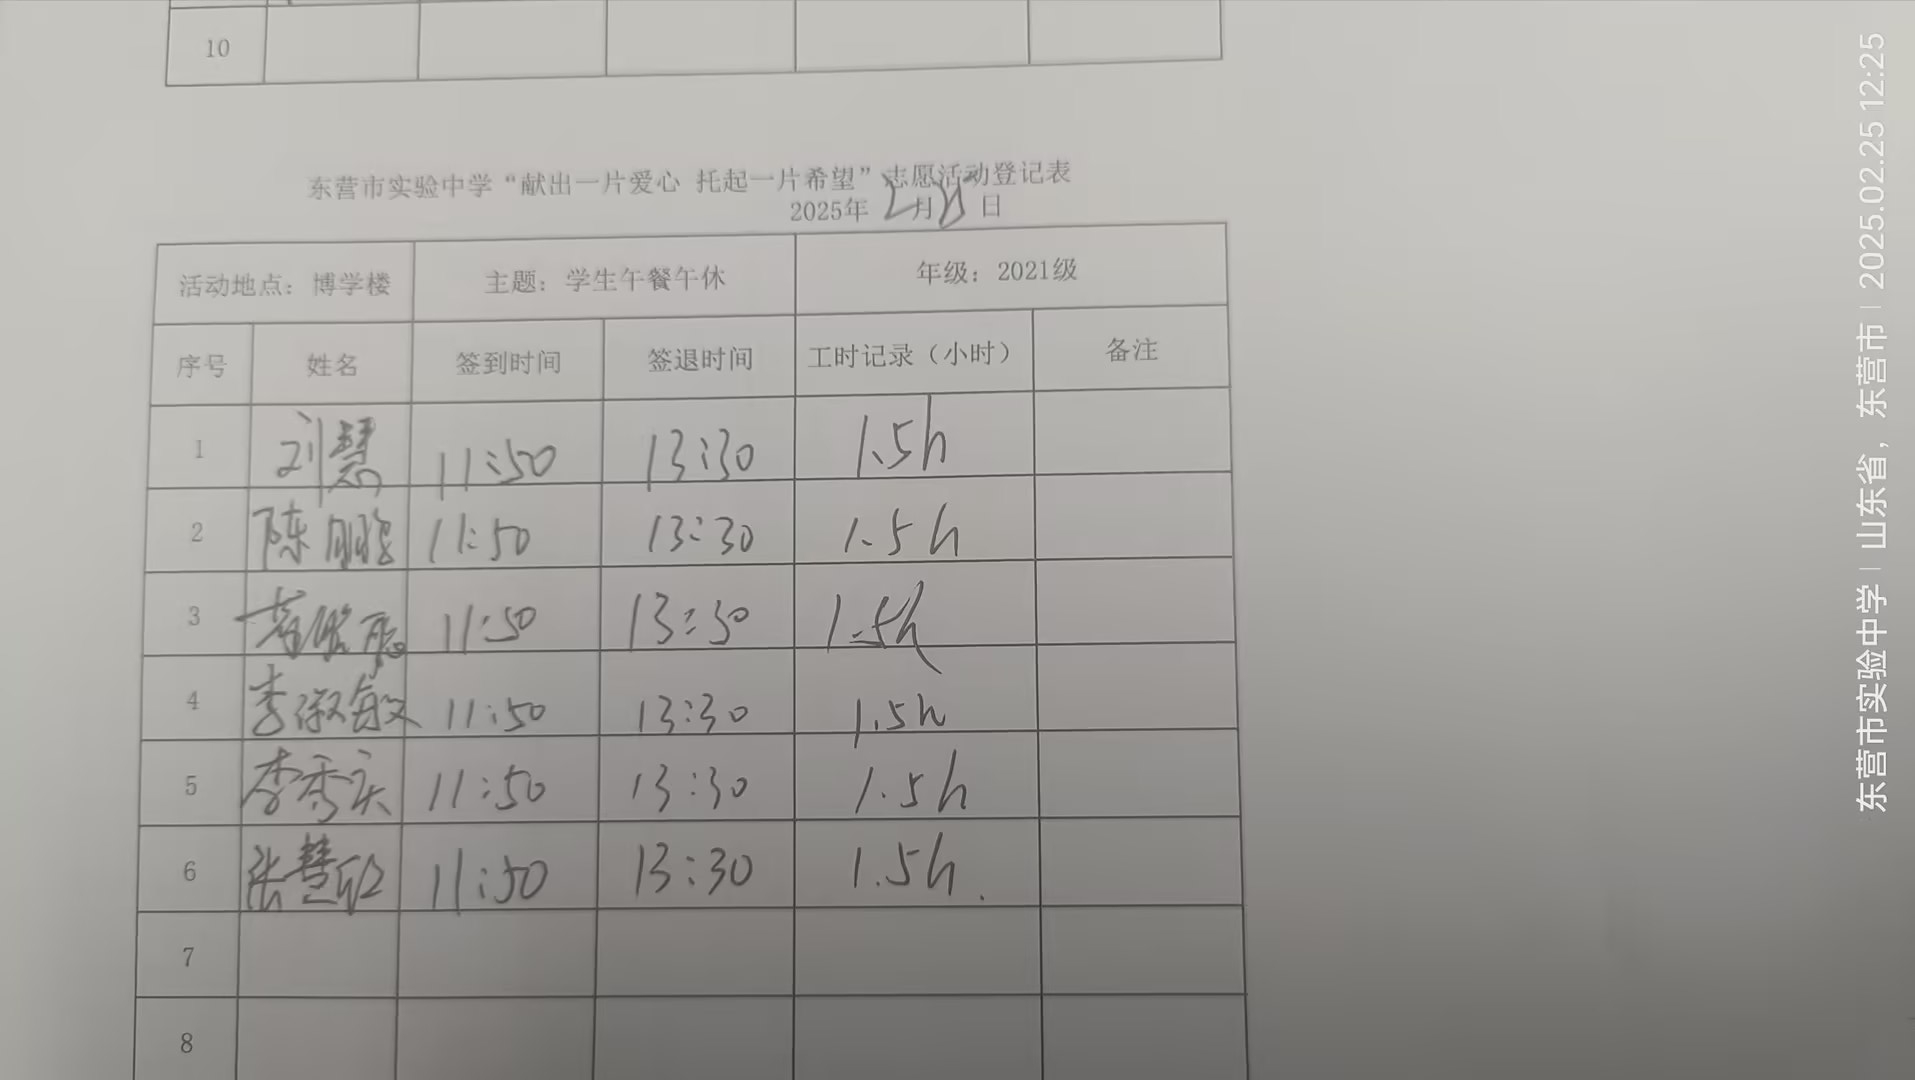 10
东营市实验中学“献出一片爱心 托起一片希望”志愿活动登记表
2025年 2月25日
活动地点：博学楼 主题：学生午餐午休 年级：2021级
序号 姓名 签到时间 签退时间 工时记录（小时） 备注
1 刘慧 11:50 13:30 1.5h
2 陈鹏 11:50 13:30 1.5h
3 11:50 13:30 1.5h
4 李淑敏 11:50 13:30 1.5h
5 李秀庆 11:50 13:30 1.5h
6 张慧 11:50 13:30 1.5h.
7
8
东营市实验中学 | 山东省，东营市 | 2025.02.25 12:25